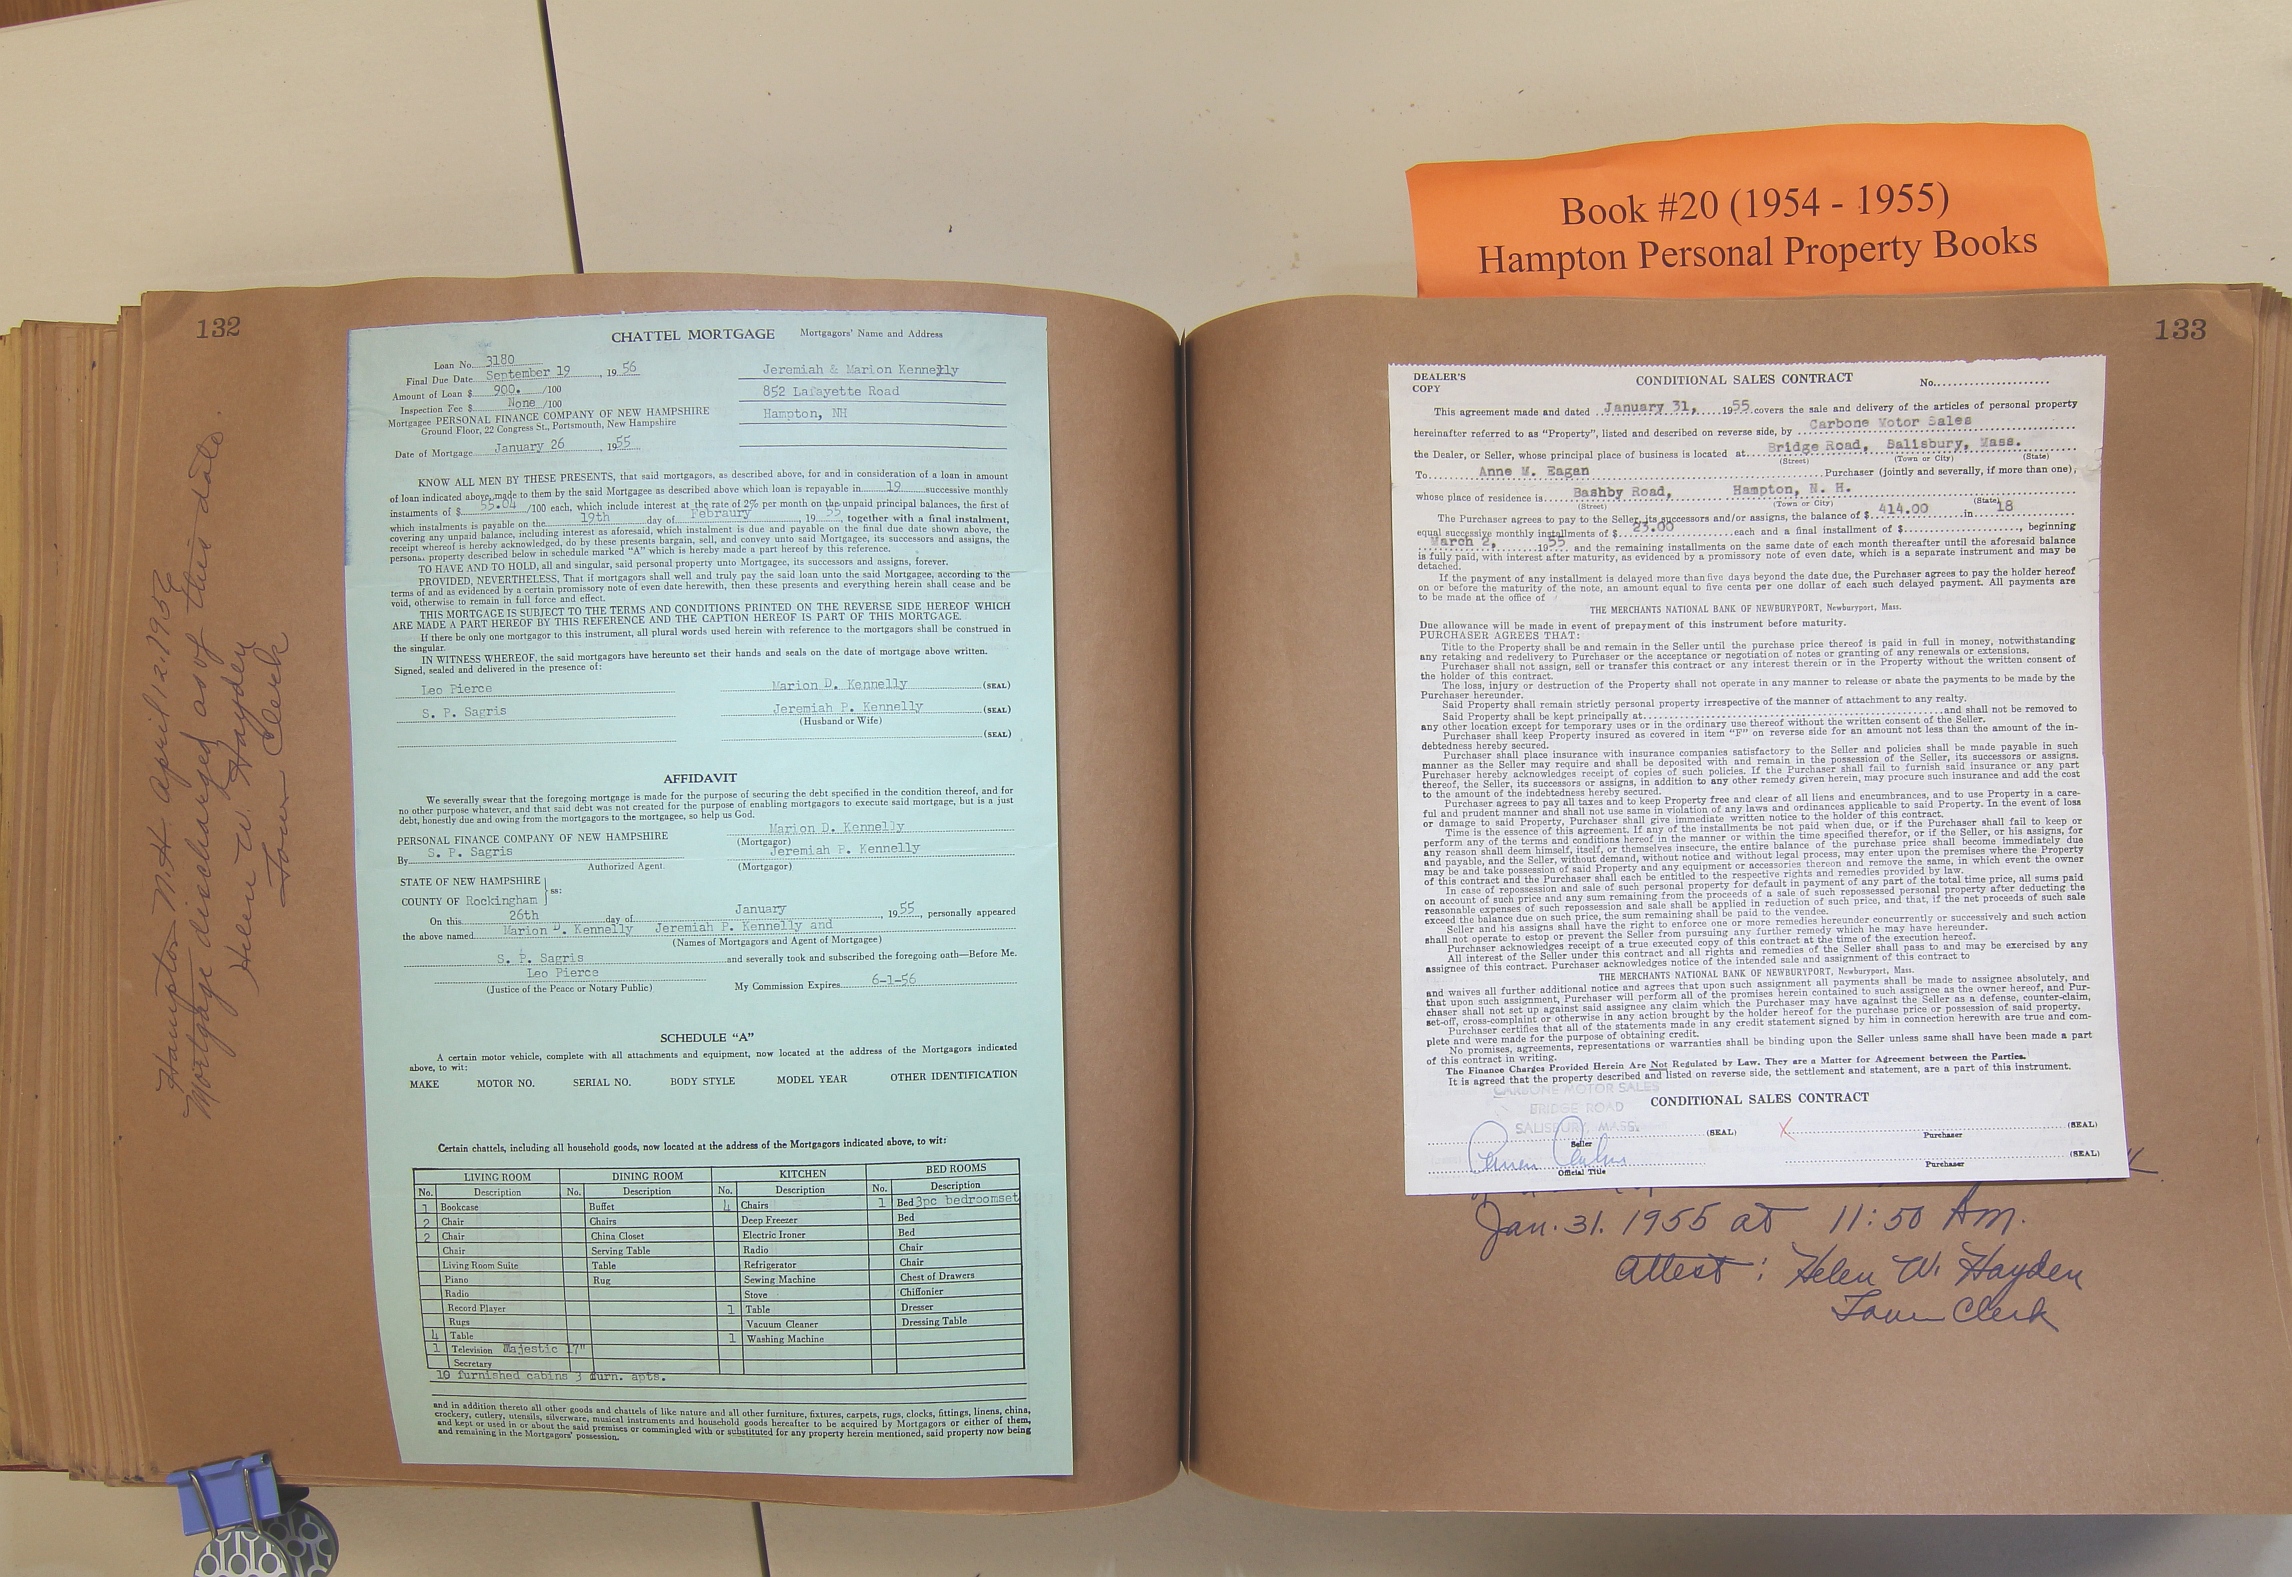 Book #20 (1954 - 1955)
Hampton Personal Property Books
132
Hampton N.H. April 12, 
Mortgage discharged as of this date.
Helen W. Hayden
Town Clerk
CHATTEL MORTGAGE Mortgagors' Name and Address
Loan No. 3180
Final Due Date September 19, 1956
Amount of Loan $ 900. /100
Inspection Fee $ None /100
Mortgagee PERSONAL FINANCE COMPANY OF NEW HAMPSHIRE
Ground Floor, 22 Congress St., Portsmouth, New Hampshire
Date of Mortgage January 26, 1955
Jeremiah & Marion Kennelly
852 Lafayette Road
Hampton, NH
KNOW ALL MEN BY THESE PRESENTS, that said mortgagors, as described above, for and in consideration of a loan in amount
of loan indicated above, made to them by the said Mortgagee as described above which loan is repayable in 19 successive monthly
instalments of $ 55.04 /100 each, which include interest at the rate of 2% per month on the unpaid principal balances, the first of
which instalments is payable on the 19th day of Febraury, 1955, together with a final instalment,
covering any unpaid balance, including interest as aforesaid, which instalment is due and payable on the final due date shown above, the
receipt whereof is hereby acknowledged, do by these presents bargain, sell, and convey unto said Mortgagee, its successors and assigns, the
personal property described below in schedule marked "A" which is hereby made a part hereof by this reference.
TO HAVE AND TO HOLD, all and singular, said personal property unto Mortgagee, its successors and assigns, forever.
PROVIDED, NEVERTHELESS, That if mortgagors shall well and truly pay the said loan unto the said Mortgagee, according to the
terms of and as evidenced by a certain promissory note of even date herewith, then these presents and everything herein shall cease and be
void, otherwise to remain in full force and effect.
THIS MORTGAGE IS SUBJECT TO THE TERMS AND CONDITIONS PRINTED ON THE REVERSE SIDE HEREOF WHICH
ARE MADE A PART HEREOF BY THIS REFERENCE AND THE CAPTION HEREOF IS PART OF THIS MORTGAGE.
If there be only one mortgagor to this instrument, all plural words used herein with reference to the mortgagors shall be construed in
the singular.
IN WITNESS WHEREOF, the said mortgagors have hereunto set their hands and seals on the date of mortgage above written.
Signed, sealed and delivered in the presence of:
Leo Pierce Marion D. Kennelly (SEAL)
S. P. Sagris Jeremiah P. Kennelly (SEAL)
(Husband or Wife)
(SEAL)
AFFIDAVIT
We severally swear that the foregoing mortgage is made for the purpose of securing the debt specified in the condition thereof, and for
no other purpose whatever, and that said debt was not created for the purpose of enabling mortgagors to execute said mortgage, but is a just
debt, honestly due and owing from the mortgagors to the mortgagee, so help us God.
PERSONAL FINANCE COMPANY OF NEW HAMPSHIRE Marion D. Kennelly
(Mortgagor)
By S. P. Sagris Jeremiah P. Kennelly
Authorized Agent. (Mortgagor)
STATE OF NEW HAMPSHIRE
ss:
COUNTY OF Rockingham
On this 26th day of January, 1955, personally appeared
the above named Marion D. Kennelly Jeremiah P. Kennelly and
(Names of Mortgagors and Agent of Mortgagee)
S. P. Sagris and severally took and subscribed the foregoing oath—Before Me.
Leo Pierce
(Justice of the Peace or Notary Public) My Commission Expires 6-1-56
SCHEDULE "A"
A certain motor vehicle, complete with all attachments and equipment, now located at the address of the Mortgagors indicated
above, to wit:
MAKE MOTOR NO. SERIAL NO. BODY STYLE MODEL YEAR OTHER IDENTIFICATION
Certain chattels, including all household goods, now located at the address of the Mortgagors indicated above, to wit:
LIVING ROOM DINING ROOM KITCHEN BED ROOMS
No. Description No. Description No. Description No. Description
1 Bookcase Buffet 4 Chairs 1 Bed 3pc bedroomset
2 Chair Chairs Deep Freezer Bed
2 Chair China Closet Electric Ironer Bed
Chair Serving Table Radio Chair
Living Room Suite Table Refrigerator Chair
Piano Rug Sewing Machine Chest of Drawers
Radio Stove Chiffonier
Record Player 1 Table Dresser
Rugs Vacuum Cleaner Dressing Table
4 Table 1 Washing Machine
1 Television Majestic 17"
Secretary
10 furnished cabins 3 furn. apts.
and in addition thereto all other goods and chattels of like nature and all other furniture, fixtures, carpets, rugs, clocks, fittings, linens, china,
crockery, cutlery, utensils, silverware, musical instruments and household goods hereafter to be acquired by Mortgagors or either of them,
and kept or used in or about the said premises or commingled with or substituted for any property herein mentioned, said property now being
and remaining in the Mortgagors' possession.
133
DEALER'S
COPY
CONDITIONAL SALES CONTRACT No.
This agreement made and dated January 31, 1955 covers the sale and delivery of the articles of personal property
hereinafter referred to as "Property", listed and described on reverse side, by Carbone Motor Sales
the Dealer, or Seller, whose principal place of business is located at Bridge Road, Salisbury, Mass.
(Street) (Town or City) (State)
To Anne M. Eagan Purchaser (jointly and severally, if more than one),
whose place of residence is Bashby Road, Hampton, N. H.
(Street) (Town or City) (State)
The Purchaser agrees to pay to the Seller, its successors and/or assigns, the balance of $ 414.00 in 18
equal successive monthly installments of $ 23.00 each and a final installment of $ , beginning
March 2, 1955 and the remaining installments on the same date of each month thereafter until the aforesaid balance
is fully paid, with interest after maturity, as evidenced by a promissory note of even date, which is a separate instrument and may be
detached.
If the payment of any installment is delayed more than five days beyond the date due, the Purchaser agrees to pay the holder hereof
on or before the maturity of the note, an amount equal to five cents per one dollar of each such delayed payment. All payments are
to be made at the office of
THE MERCHANTS NATIONAL BANK OF NEWBURYPORT, Newburyport, Mass.
Due allowance will be made in event of prepayment of this instrument before maturity.
PURCHASER AGREES THAT:
Title to the Property shall be and remain in the Seller until the purchase price thereof is paid in full in money, notwithstanding
any retaking and redelivery to Purchaser or the acceptance or negotiation of notes or granting of any renewals or extensions.
Purchaser shall not assign, sell or transfer this contract or any interest therein or in the Property without the written consent of
the holder of this contract.
The loss, injury or destruction of the Property shall not operate in any manner to release or abate the payments to be made by the
Purchaser hereunder.
Said Property shall remain strictly personal property irrespective of the manner of attachment to any realty.
Said Property shall be kept principally at and shall not be removed to
any other location except for temporary uses or in the ordinary use thereof without the written consent of the Seller.
Purchaser shall keep Property insured as covered in item "F" on reverse side for an amount not less than the amount of the in-
debtedness hereby secured.
Purchaser shall place insurance with insurance companies satisfactory to the Seller and policies shall be made payable in such
manner as the Seller may require and shall be deposited with and remain in the possession of the Seller, its successors or assigns.
Purchaser hereby acknowledges receipt of copies of such policies. If the Purchaser shall fail to furnish said insurance or any part
thereof, the Seller, its successors or assigns, in addition to any other remedy given herein, may procure such insurance and add the cost
to the amount of the indebtedness hereby secured.
Purchaser agrees to pay all taxes and to keep Property free and clear of all liens and encumbrances, and to use Property in a care-
ful and prudent manner and shall not use same in violation of any laws and ordinances applicable to said Property. In the event of loss
or damage to said Property, Purchaser shall give immediate written notice to the holder of this contract.
Time is the essence of this agreement. If any of the installments be not paid when due, or if the Purchaser shall fail to keep or
perform any of the terms and conditions hereof in the manner or within the time specified therefor, or if the Seller, or his assigns, for
any reason shall deem himself, itself, or themselves insecure, the entire balance of the purchase price shall become immediately due
and payable, and the Seller, without demand, without notice and without legal process, may enter upon the premises where the Property
may be and take possession of said Property and any equipment or accessories thereon and remove the same, in which event the owner
of this contract and the Purchaser shall each be entitled to the respective rights and remedies provided by law.
In case of repossession and sale of such personal property for default in payment of any part of the total time price, all sums paid
on account of such price and any sum remaining from the proceeds of a sale of such repossessed personal property after deducting the
reasonable expenses of such repossession and sale shall be applied in reduction of such price, and that, if the net proceeds of such sale
exceed the balance due on such price, the sum remaining shall be paid to the vendee.
Seller and his assigns shall have the right to enforce one or more remedies hereunder concurrently or successively and such action
shall not operate to estop or prevent the Seller from pursuing any further remedy which he may have hereunder.
Purchaser acknowledges receipt of a true executed copy of this contract at the time of the execution hereof.
All interest of the Seller under this contract and all rights and remedies of the Seller shall pass to and may be exercised by any
assignee of this contract. Purchaser acknowledges notice of the intended sale and assignment of this contract to
THE MERCHANTS NATIONAL BANK OF NEWBURYPORT, Newburyport, Mass.
and waives all further additional notice and agrees that upon such assignment all payments shall be made to assignee absolutely, and
that upon such assignment, Purchaser will perform all of the promises herein contained to such assignee as the owner hereof, and Pur-
chaser shall not set up against said assignee any claim which the Purchaser may have against the Seller as a defense, counter-claim,
set-off, cross-complaint or otherwise in any action brought by the holder hereof for the purchase price or possession of said property.
Purchaser certifies that all of the statements made in any credit statement signed by him in connection herewith are true and com-
plete and were made for the purpose of obtaining credit.
No promises, agreements, representations or warranties shall be binding upon the Seller unless same shall have been made a part
of this contract in writing.
The Finance Charges Provided Herein Are Not Regulated by Law. They are a Matter for Agreement between the Parties.
It is agreed that the property described and listed on reverse side, the settlement and statement, are a part of this instrument.
CARBONE MOTOR SALES
BRIDGE ROAD
SALISBURY, MASS.
CONDITIONAL SALES CONTRACT
(SEAL) X (SEAL)
Seller Purchaser
(SEAL)
Official Title Purchaser
Jan. 31. 1955 at 11:50 Am.
Attest: Helen W. Hayden
Town Clerk